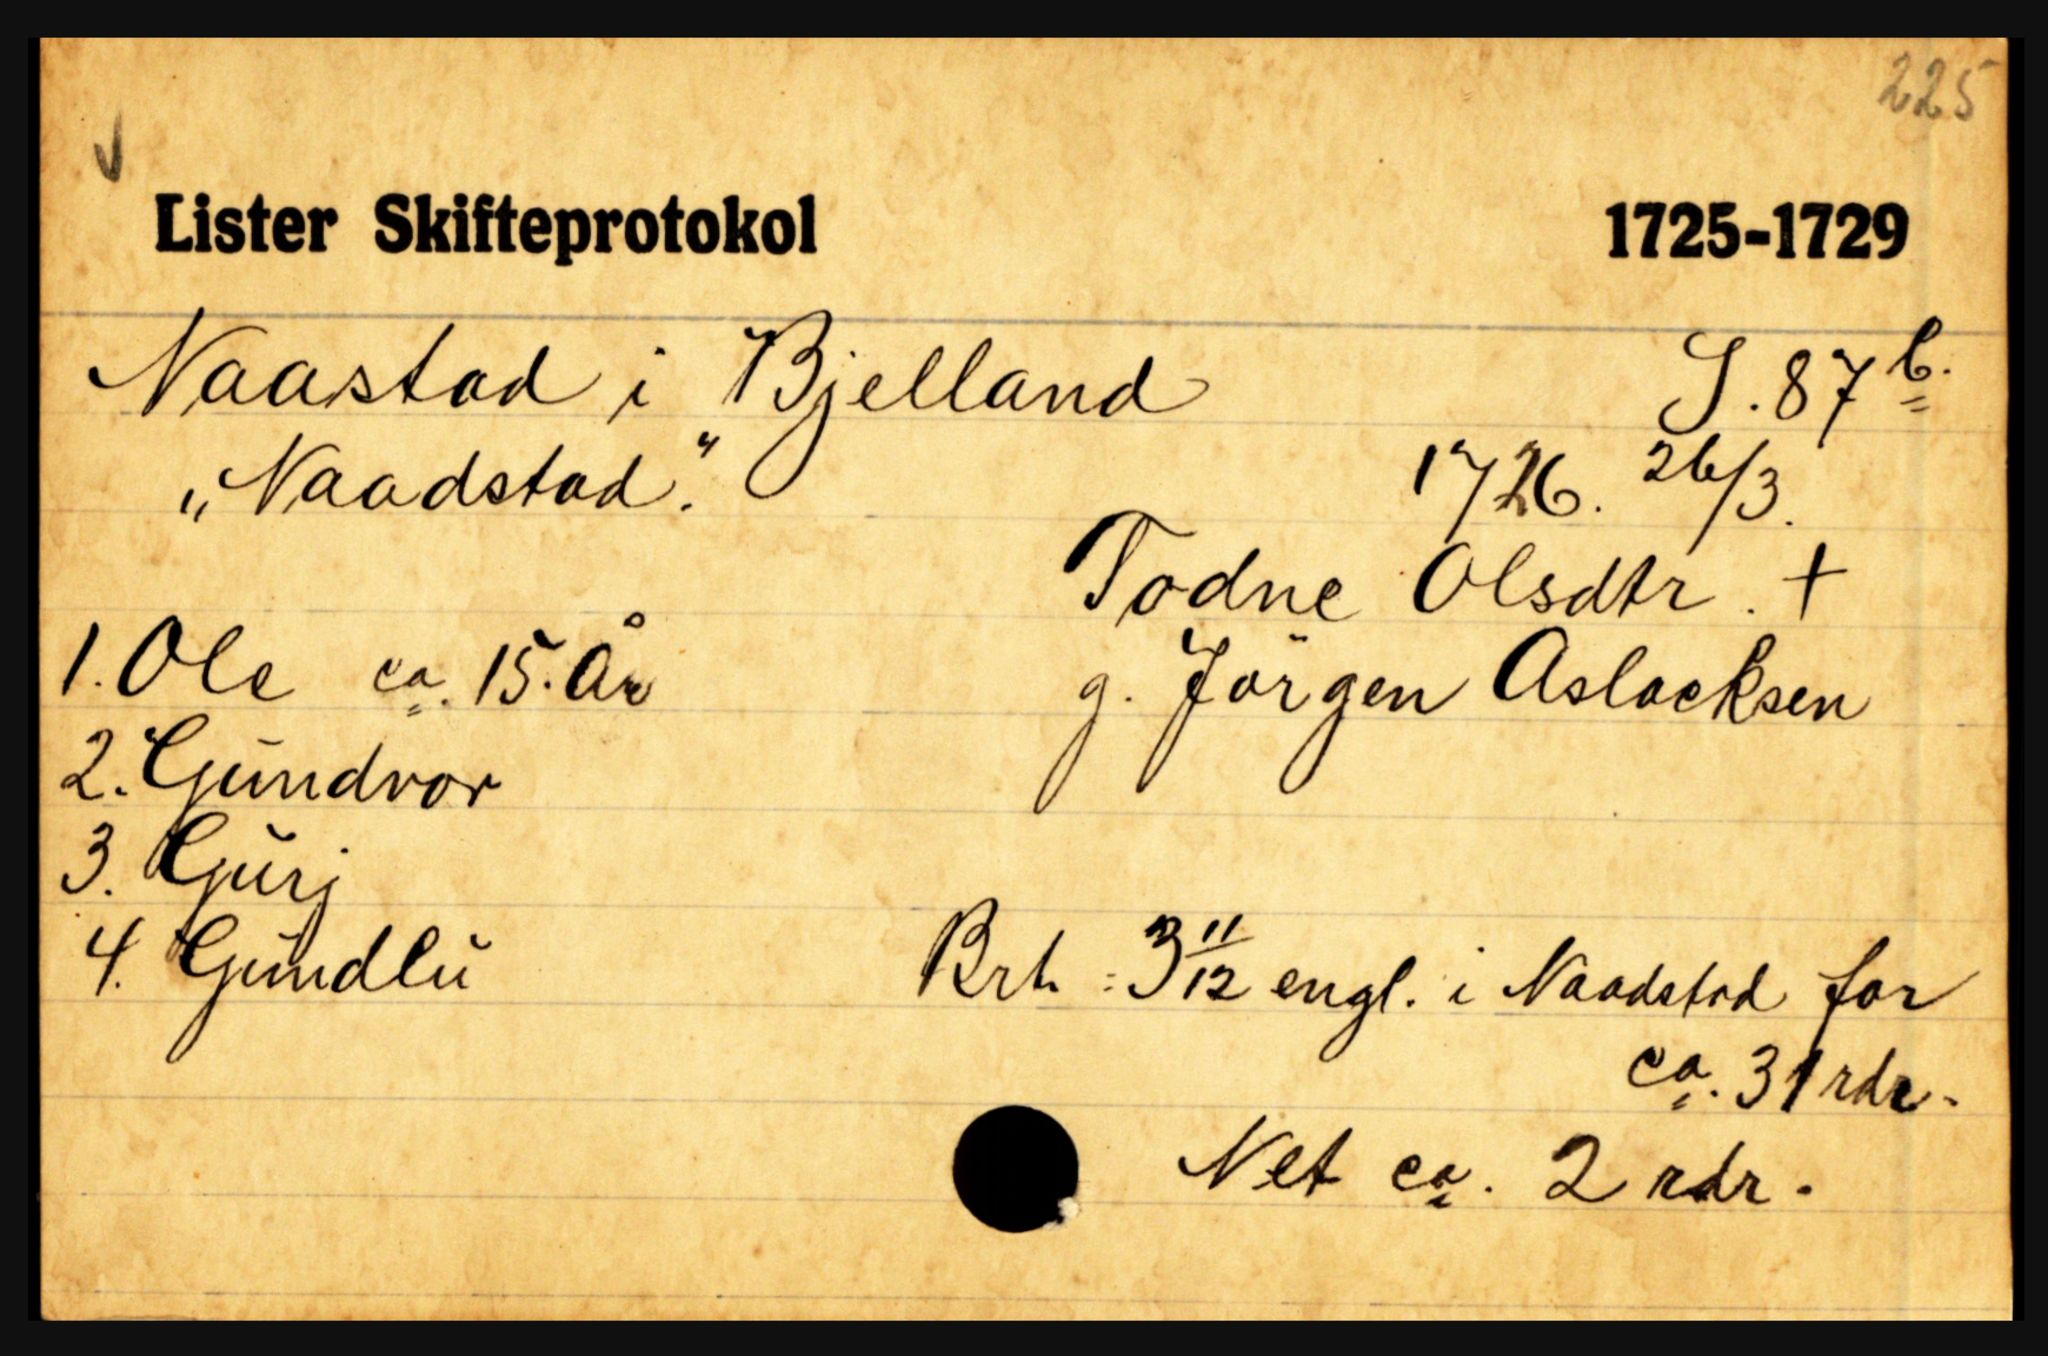 225
Lister Skifteprotokol 1725-1729
Naastad i Bjelland S. 87 b.
„Naadstad."
1726. 26/3.
Todne Olsdtr. +
1. Ole ca. 15. År
g. Jörgen Aslacksen
2. Gŭndvor
3. Gŭrj
4. Gŭndlŭ
Brh. = 3 11/12 engl. i Naadstad for
ca. 31 rdr.
Net ca. 2 rdr.